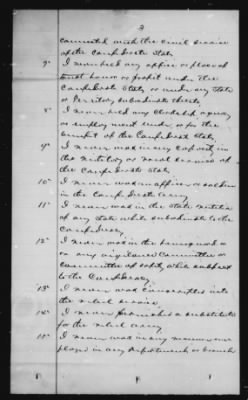 2
connected with the civil service
of the Confederate States
7th I never held any office or place of
trust honor or profit under the
Confederate States or under any State
or Territory subordinate thereto
8th I never held any clerkship agency
or employment under or for the
benefit of the Confederate States
9th I never was in any capacity in
the military or naval service of
the Confederate States
10th I never was an officer or soldier
in the Confederate Army
11th I never was in the State Militia
of any State while subordinate to the
Confederacy
12th I never was in the home guard or
on any vigilance Committee or
committee of safety while subject
to the Confederacy
13th I never was conscripted into
the rebel service
14th I never furnished a substitute
for the rebel army
15th I never was in any manner em
ployed in any department or branch